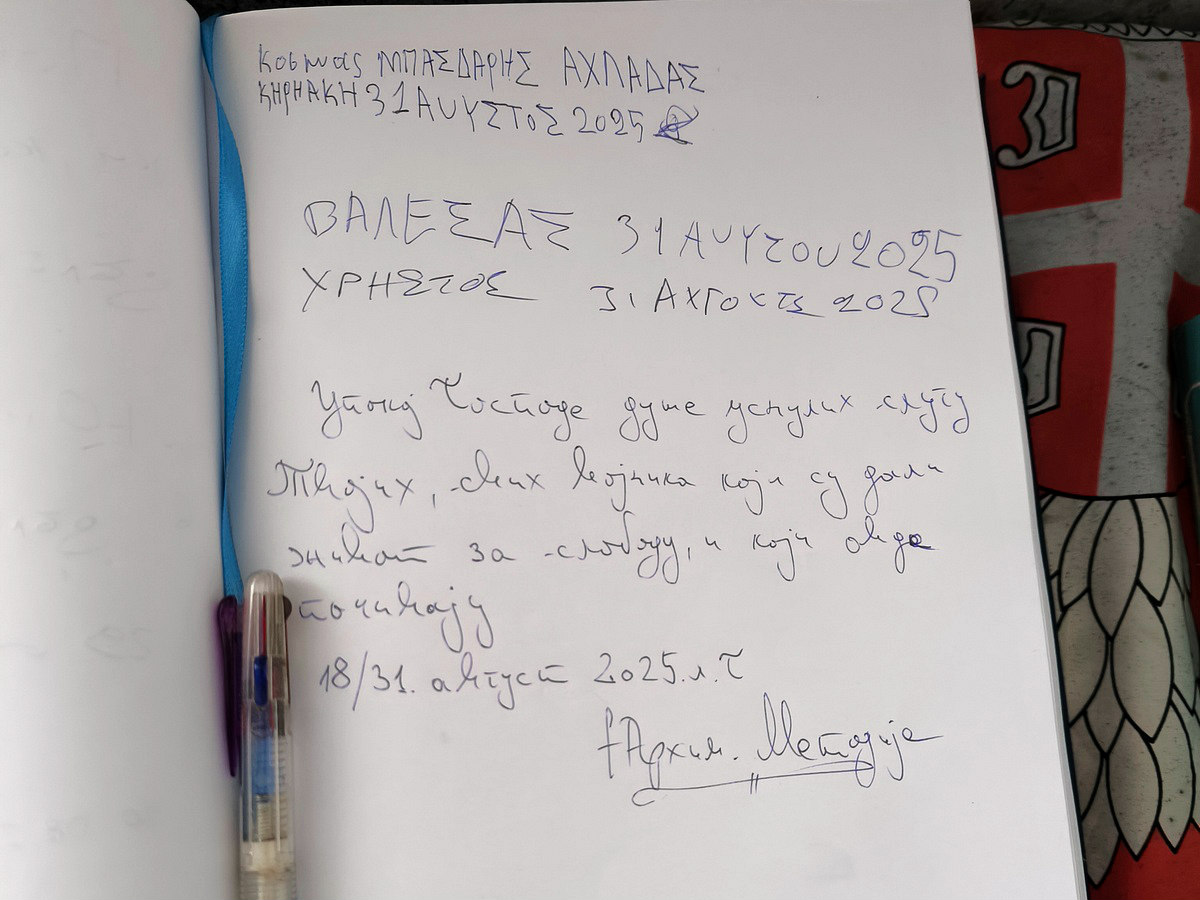 Κοσμας ΜΠΑΣΔΑΡΗΣ ΑΧΛΑΔΑΣ
ΚΗΡΗΑΚΗ 31 ΑΥΥΣΤΟΣ 2025
ΒΑΛΕΣΣΑΣ 31 ΑΥΥΣΤΟΥ 2025
ΧΡΗΣΤΟΣ 31 2025
Упокој Господе душе уснулих слугу
Твојих, свих војника који су дали
живот за слободу, и који овде
почивају
18/31. август 2025.л.Г
†Архим. Методије